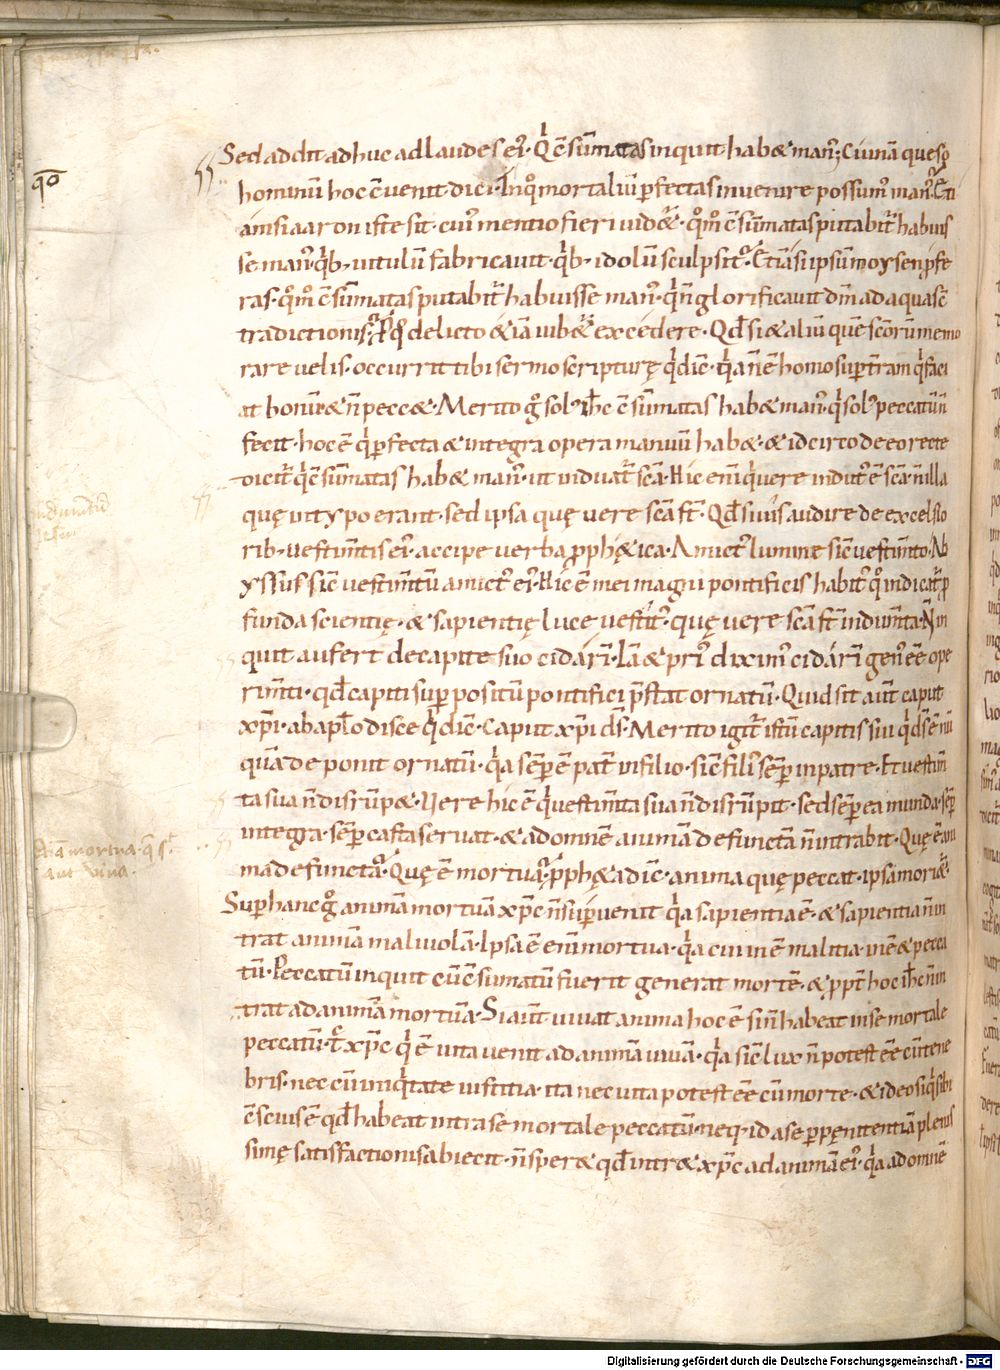 Sed addit adhuc ad laudes ei᷒· Qi ē sūmatas inquit hab& man᷒; Cui nā quęso
hominū hoc ēvenit dici· In q̊ mortaliū ꝑfectas invenire possum᷒ man᷒· &i
ā nisi aaron iste sit· cui᷒ mentio fieri vid&· q̊m̄ ēsūmatas putabit᷒ habuis
se man᷒· qib; vitulū fabricavit· qib; idolū sculpsit· &iā si ipsū moysen ꝓfe
ras· q̊m̄ ēsūmatas putabit᷒ habuisse man᷒· qi n̄ glorificavit dn̄m ad aquas ē
tradictionis· ꝓ q̊ delicto &iā iub& excedere· Qd̄ si & aliū quē scōrū memo
rare velis· occurrit tibi sermo scripturę qi dic̄· qa n̄ ē homo suꝑ t̄ram qi faci
at bonū & n̄ pecc&· Merito g̊ sol᷒ ih̄c ēsūmatas hab& man᷒· qi sol᷒ peccatū n̄
fecit· hoc ē qi ꝑfecta & integra opera manuū hab&· & idcirco de eo recte
dicit᷒ qi ēsūmatas hab& man᷒· ut induat᷒ scā· Hic eni᷒ qi vere indut᷒ ē scā· n̄ illa
quę in typo erant· sed ipsa quę vere scā st̄· Qd̄ si vis audire de excelsio
rib; vestimtis ei᷒· accipe verba ꝓph&ica· Amict᷒ lumine sic̄ vestimto· Ab
yssus sic̄ vestimtū amict᷒ ei᷒· Hic ē mei magni pontificis habit᷒ q̊ indicat᷒ ꝓ
funda scientię· & sapientię luce vestit᷒· quę vere scā st̄ indumta· N̄ in
quit aufert de capite suo cidari᷒· Iā & pri᷒ diximus cidari᷒ gen᷒ eē ope
rimti· qd̄ capiti superpositū pontifici p̄stat ornatū· Quid sit aut̄ caput
xp̄i· ab apło disce qi dic̄· Caput xp̄i ds̄· Merito igit᷒ istū capitis sui qi ds̄ ē nū
quā deponit ornatū· qa semꝑ ē pat᷒ in filio· sic̄ fili᷒ semꝑ in patre· Et vestim
ta sua n̄ disrūp&· Vere hic ē qi vestimta sua n̄ disrūpit· sed semꝑ ea munda· semꝑ
integra· semꝑ casta servat· & ad omnē animā defunctā n̄ intrabit· Quę ē ani
ma defuncta· Quę ē mortua· ꝓph&a dic̄· anima quę peccat· ipsa mori&·
Suꝑ hanc g̊ animā mortuā xp̄c n̄ suꝑvenit qa sapientia ē· & sapientia n̄ in
trat animā malivolā· Ipsa ē enim mortua· qa cui inē malitia· inē & pecca
tū· Peccatū inquit cū ēsumatū fuerit generat mortē· & ꝓpt᷒ hoc ih̄c n̄ in
trat ad animā mortuā· Si aut̄ vivat anima hoc ē si n̄ habeat in se mortale
peccatū· tc̄ xp̄c qi ē vita venit ad animā vivā· qa sic̄ lux n̄ potest eē cū tene
bris· nec cū iniqitate iustitia· ita nec vita potest eē cū morte· & ideo si qis sibi
ēscius ē qd̄ habeat intra se mortale peccatū· neq; id a se ꝑ pęnitentiā plenis
simę satisfactionis abiecit· n̄ sper& qd̄ intr& xp̄c ad animā ei᷒· qa ad omnē
qō
Aīa mortua· q̄ sit
aut viva·
Digitalisierung gefördert durch die Deutsche Forschungsgemeinschaft - DFG